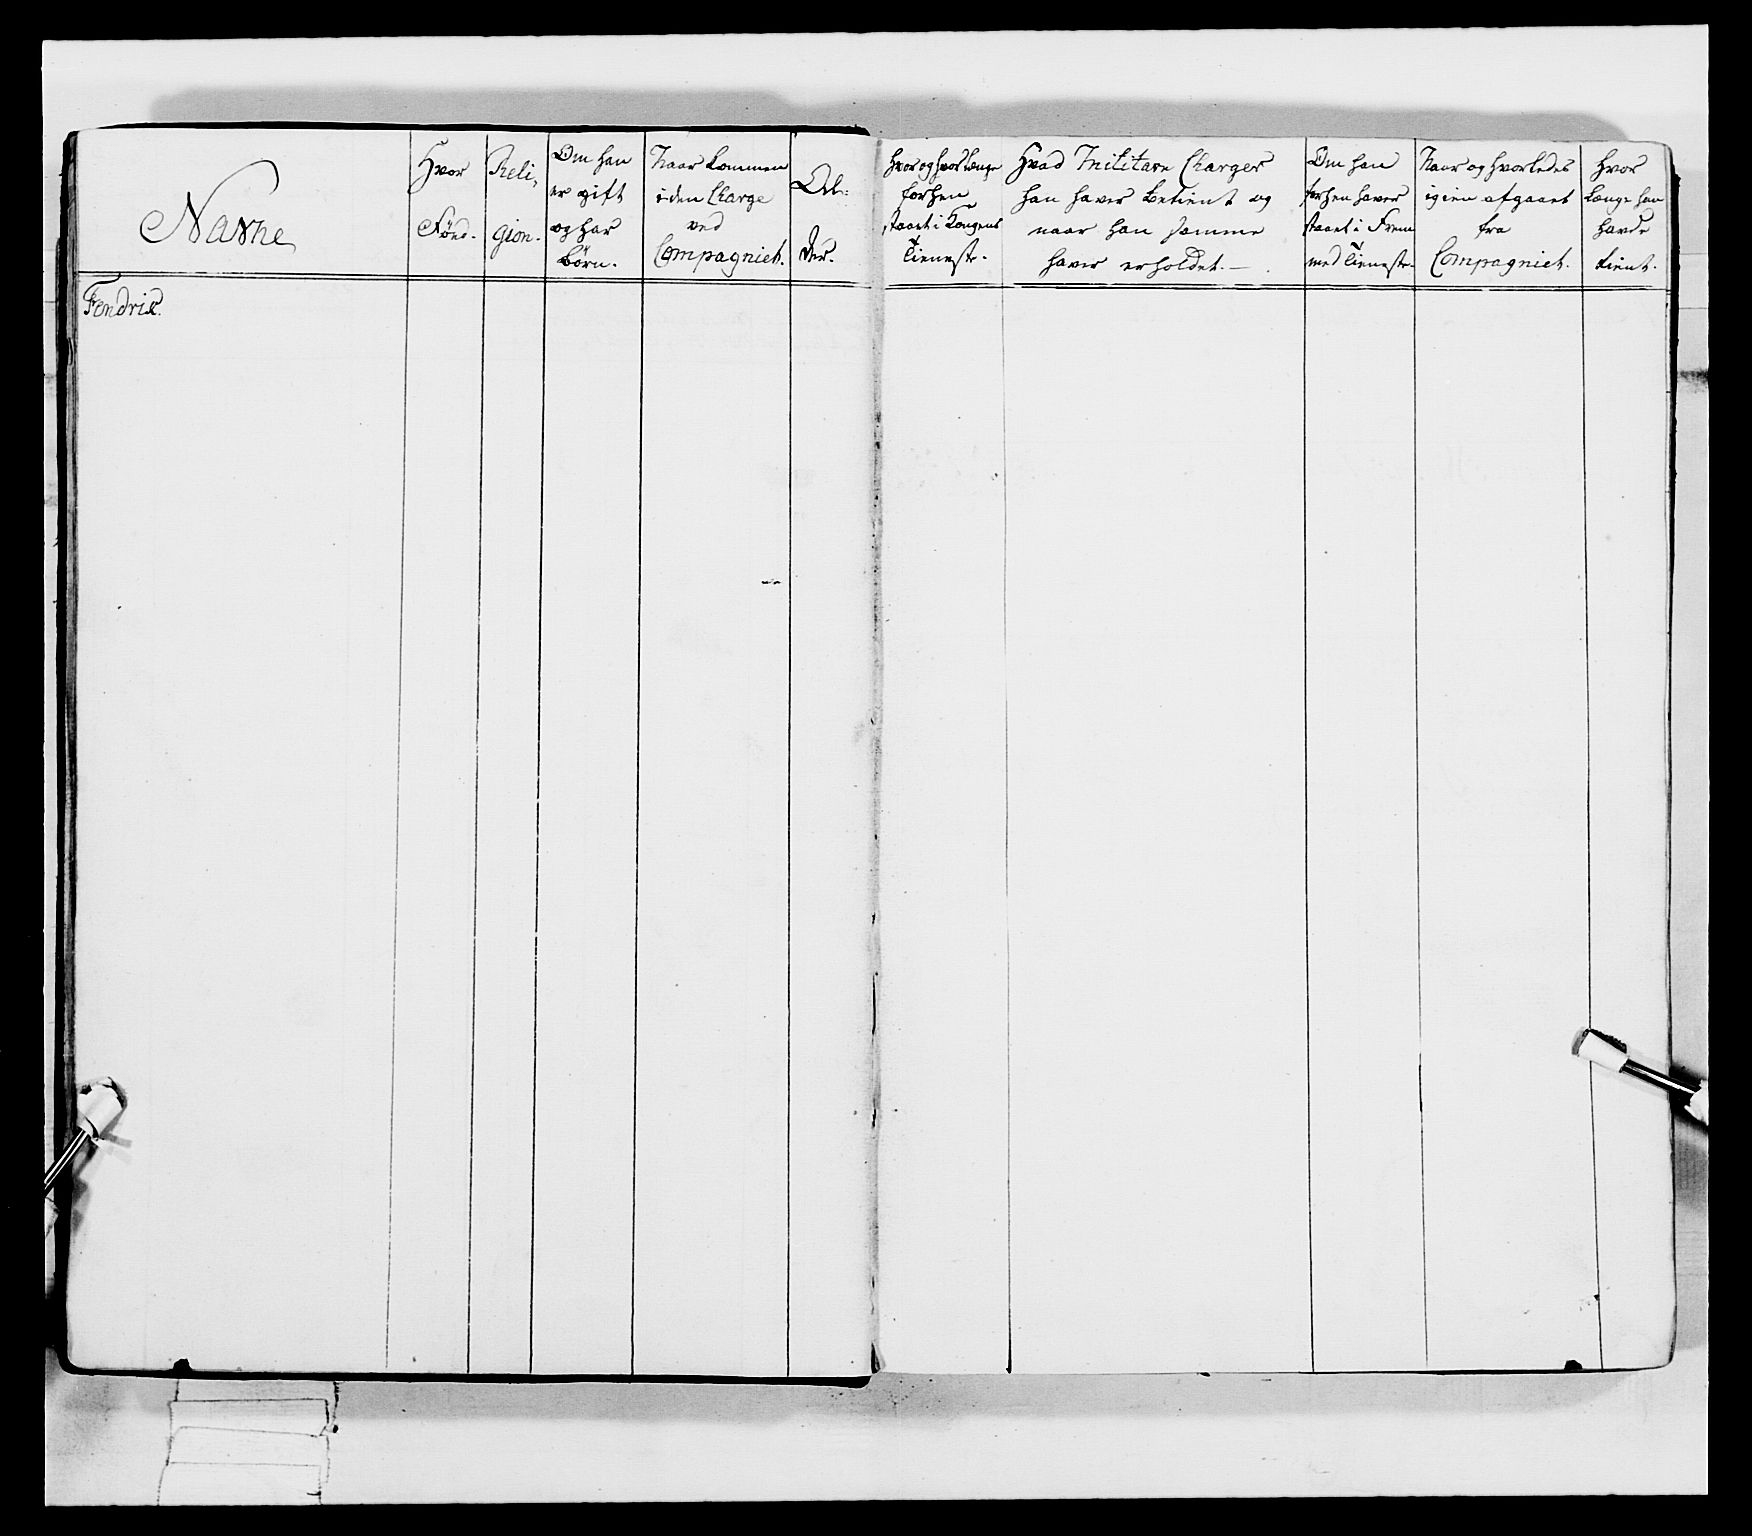 Navne
Hvor
Född.
Reli,
gion.
Om han
er gift
og har
börn.
Naar kommen
i den Charge
ved
Compagniet.
Al:
der.
Hvor og hvor længe
forhen
staaet i Kongens
Tieneste.
Hvad Militare Charger
han haver betient og
naar han samme
haver erholdet.—
Om han
forhen haver
staaet i Frem
med Tieneste.
Naar og hvorledes
igien afgaaet
fra
Compagniet.
Hvor
længe han
havde
tient.
Fendrik.